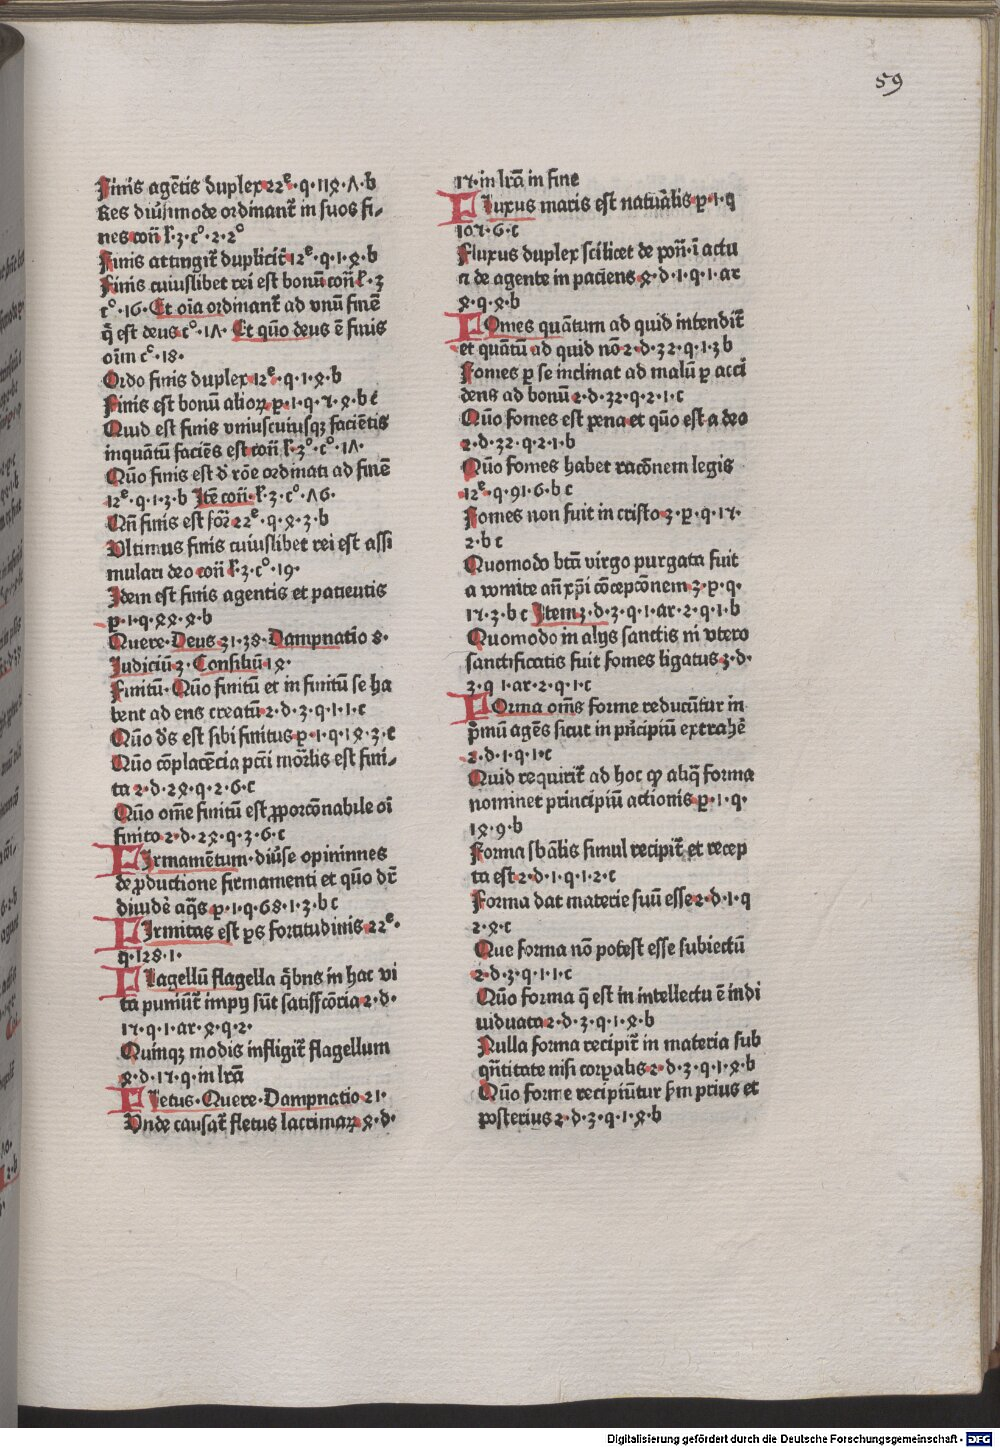 59
Finis agētis duplex 22ᵉ·q·119·Λ·b
Res diuſimode ordinant̄ in ſuos fi⸗
nes con̄ l̄·3·c°·2·2°
Finis attingit̄ duplicit̄ 12ᵉ·q·1·8·b
Finis cuiuſlibet rei eſt bonū con̄ l̄·3
c°·16·Et oīa ordinant̄ ad vnū finē
q̄ eſt deus c°·1Λ·Et quō deus ē finis
oīm c°·18·
Ordo finis duplex 12ᵉ·q·1·8·b
Finis eſt bonū alioꝝ p·1·q·7·8·b c
Quid eſt finis vniuſcuiuſqꝫ faciētis
inquātū faciēs eſt con̄ l̄·3°·c°·1Λ·
Quō finis eſt d̄ rōe ordinati ad finē
12ᵉ·q·1·3·b Itē con̄·l̄·3·c°·Λ6·
Qn̄ finis eſt for̄ 22ᵉ·q·8·3·b
Vltimus finis cuiuſlibet rei eſt aſſi
mulari deo con̄ l̄·3·c°·19·
Idem eſt finis agentis et patientis
p·1·q·88·8·b
Quere·Deus 31·38·Dampnatio 8·
Iudiciū 3·Conſiliū 18·
Finitū·Quō finitū et in finitū ſe ha
bent ad ens creatū 2·d·3·q·1·1·c
Quō d̄s eſt ſibi finitus p·1·q·18·3·c
Quō cōplacēcia pcti mor̄lis eſt fini⸗
ta 2·d·28·q·2·6·c
Quō om̄e finitū eſt ꝓporcōnabile oī
finito 2·d·28·q·3·6·c
FIrmamētum·diūſe opininnes
de ꝓductione firmamenti et quō dr̄
diuidē aq̄s p·1·q·68·1·3·b c
FIrmitas eſt ps fortitudinis 22ᵉ·
q·128·1·
FLagellū flagella q̄bns in hac vi
ta puniūt̄ impij ſūt ſatiſſcōria 2·d·
17·q·1·ar·8·q·2·
Quinqꝫ modis infligit̄ flagellum
8·d·17·q·in lrā
FLetus·Quere·Dampnatio 21·
Vnde cauſat̄ fletus lacrimaꝝ 8·d·
17·in lrā in fine
FLuxus maris eſt natuālis p·1·q
107·6·c
Fluxus duplex ſcilicet de pon̄·i actu
⁊ de agente in paciens 8·d·1·q·1·ar
8·q·8·b
FOmes quātum ad quid intendit̄
et quātū ad quid nō 2·d·32·q·1·3b
Fomes p ſe inclinat ad malū p acci
dens ad bonū 2·d·32·q·2·1·c
Quō fomes eſt pena et quō eſt a deo
2·d·32·q·2·1·b
Quō fomes habet racōnem legis
12ᵉ·q·91·6·b c
Fomes non fuit in criſto 3·p·q·17·
2·b c
Quomodo btā virgo purgata fuit
a vomite an̄ xp̄i cōcepcōnem 3·p·q·
17·3·b c Item 3·d·3·q·1·ar·2·q·1·b
Quomodo in alijs ſanctis ni vtero
ſanctificatis fuit fomes ligatus 3·d·
3·q 1·ar·2·q·1·c
FOrma om̄s forme reducūtur in
p̄mū agēs ſicut in pn̄cipiū extrahē
2·d·1·q·1·c
Quid requirit̄ ad hoc qꝫ aliq̄ forma
nominet principiū actionis p·1·q·
18·9·b
Forma ſbālis ſimul recipit̄ et recep
ta eſt 2·d·1·q·1·2·c
Forma dat materie ſuū eſſe 2·d·1·q
2·8·c
Que forma nō poteſt eſſe ſubiectū
2·d·3·q·1·1·c
Quō forma q̄ eſt in intellectu ē indi
uiduata 2·d·3·q·1·8·b
Nulla forma recipit̄ in materia ſub
qn̄titate niſi corpalis 2·d·3·q·1·8·b
Quō forme recipiūtur ẜm prius et
poſterius 2·d·3·q·1·8·b
Digitalisierung gefördert durch die Deutsche Forschungsgemeinschaft - DFG